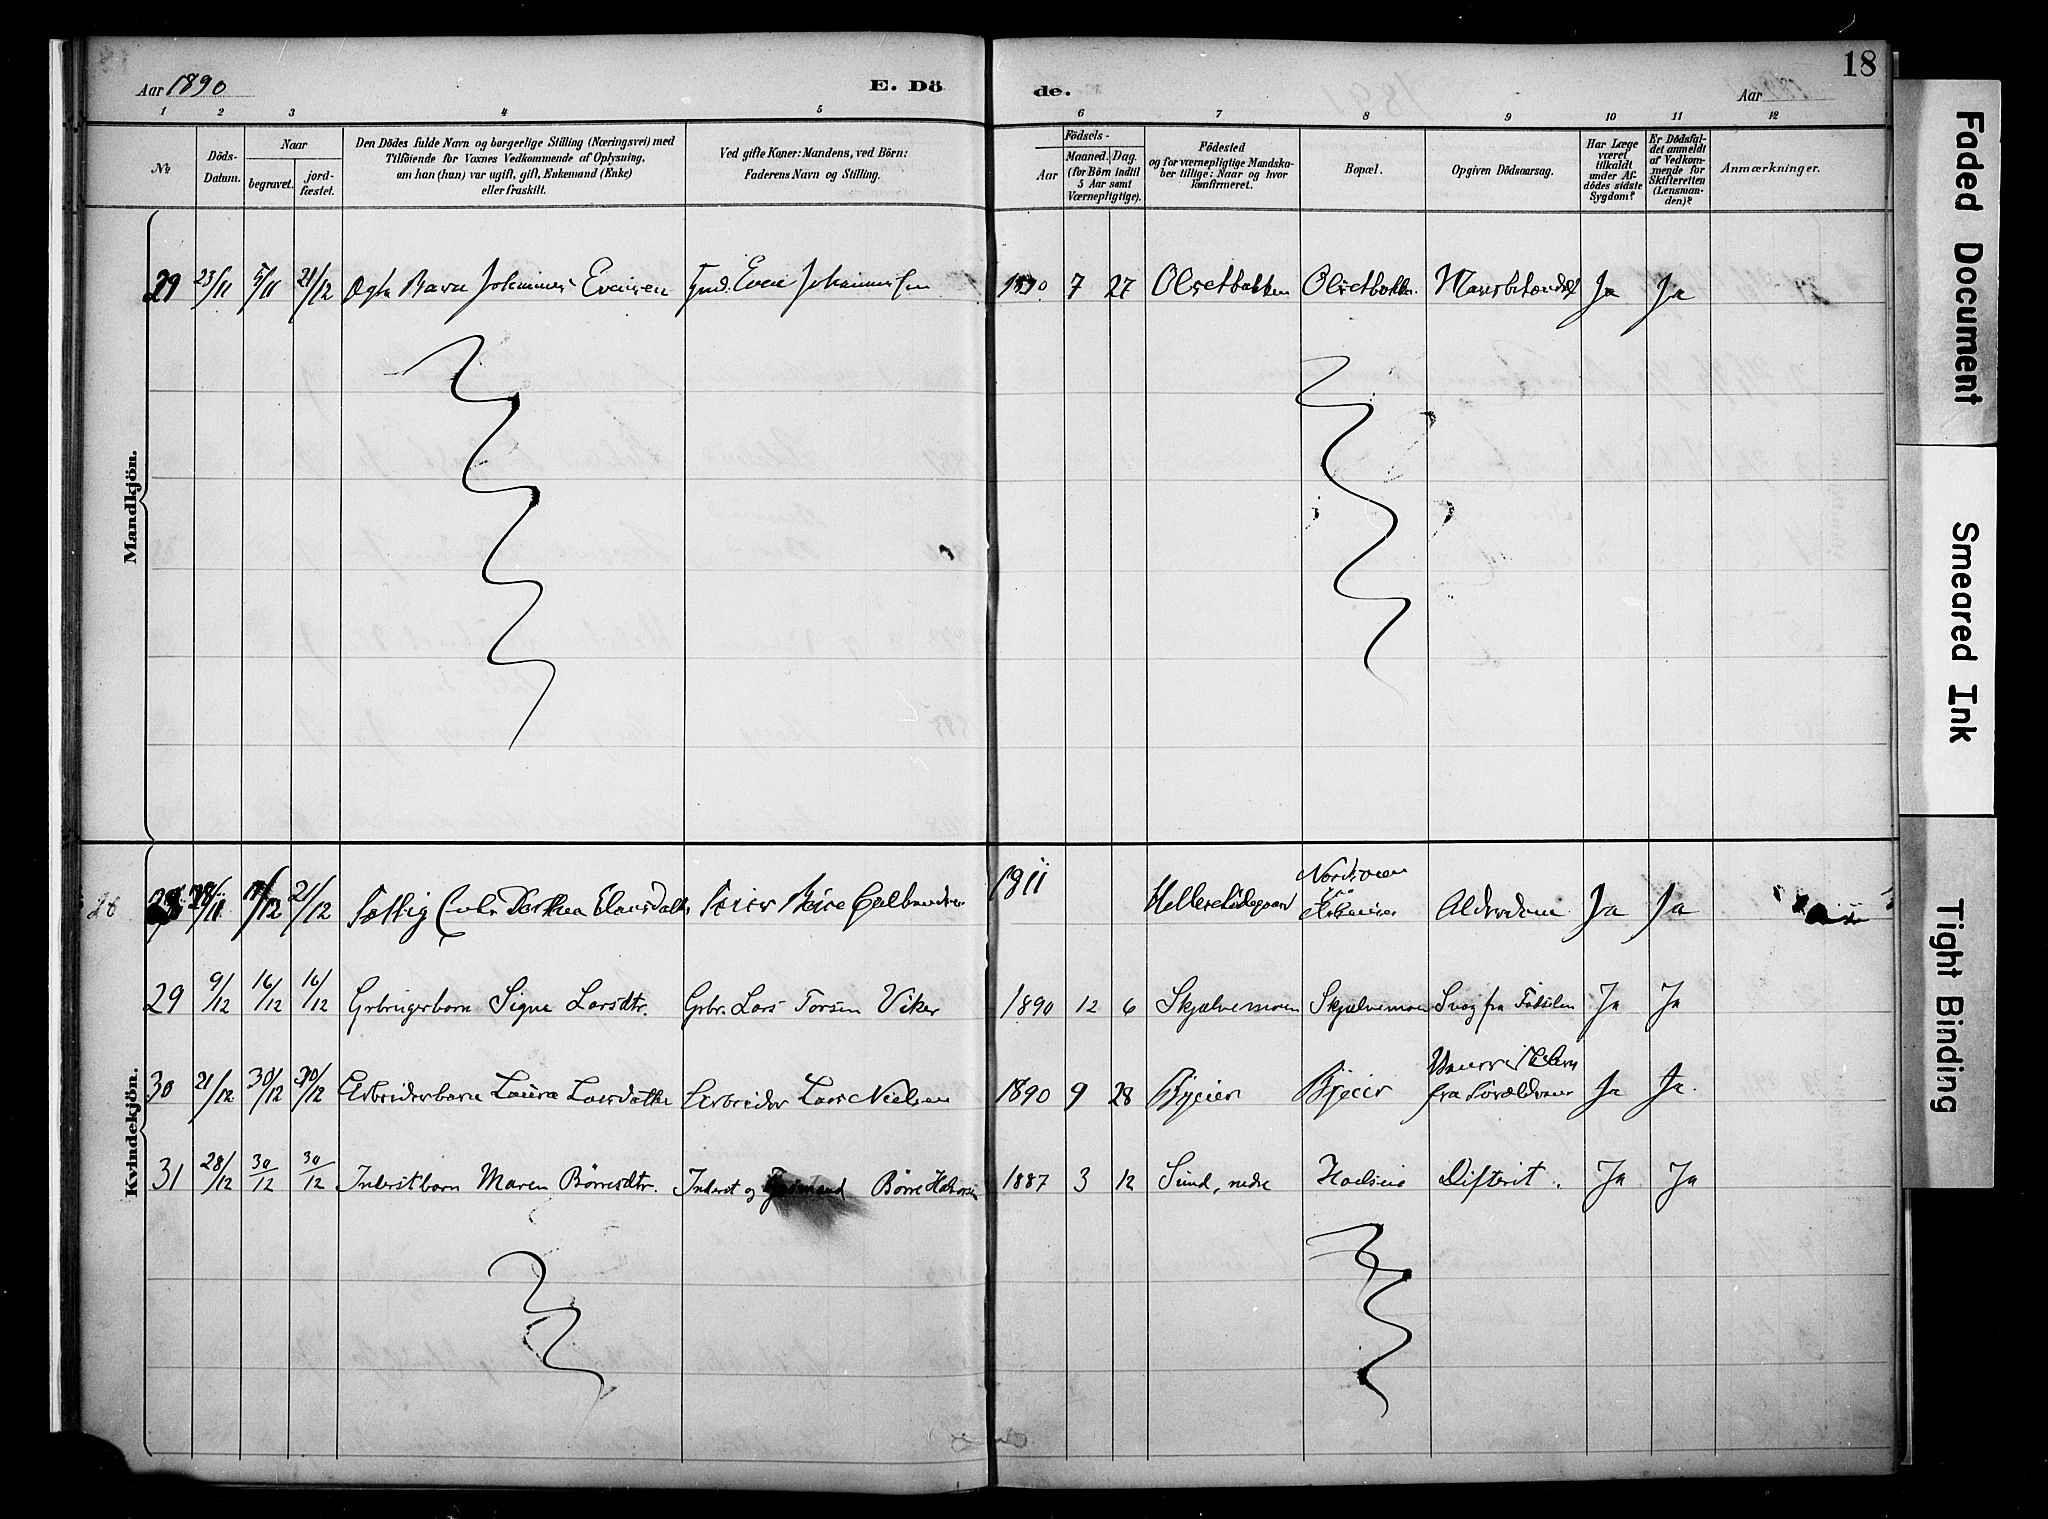 18
Aar 1890
E. Dö
de.
Aar
1 2 3 4 5 6 7 8 9 10 11 12
No
Döds-
Datum.
Naar
begravet.
jord-
fæstet.
Den Dödes fulde Navn og borgerlige Stilling (Næringsvei) med
Tilföiende for Voxnes Vedkommende af Oplysning,
om han (hun) var ugift, gift, Enkemand (Enke)
eller fraskilt.
Ved gifte Koner: Mandens, ved Börn:
Faderens Navn og Stilling.
Födsels-
Aar
Maaned. Dag.
(for Börn indtil
5 Aar samt
Værnepligtige).
Födested
og for værnepligtige Mandska-
ber tillige: Naar og hvor
konfirmeret.
Bopæl.
Opgiven Dödsaarsag.
Har Læge
været
tilkaldt
under Af-
dödes sidste
Sygdom?
Er Dödsfal-
det anmeldt
af Vedkom-
mende for
Skifteretten
(Lensman-
den)?
Anmærkninger.
Mandkjön.
29 23/11 5/11 21/12 Ægte Barn Johannes Evensen Gmd. Even Johannessen 1890 7 27 Olsetbakken Olsetbakken Ja Ja
Kvindekjön.
28 21/12 Dorthea 1811 Alderdom Ja Ja
29 9/12 16/12 16/12 Grbrugerbarn Signe Larsdtr. Grbr. Lars Torsen Viker 1890 12 6 Skjælvemoen Skjælvemoen Svag fra Fødselen Ja Ja
30 21/12 30/12 30/12 Arbeiderbarn Laura Larsdatter Arbeider Lars Nielsen 1890 9 28 Bjeier Bjeier
fra Forældrene Ja Ja.
31 28/12 30/12 30/12 Inderstbarn Maren Børresdtr. Inderst og Børre Halvorsen 1887 3 12 Sund, nedre Difterit. Ja Ja
Faded Document
Smeared Ink
Tight Binding